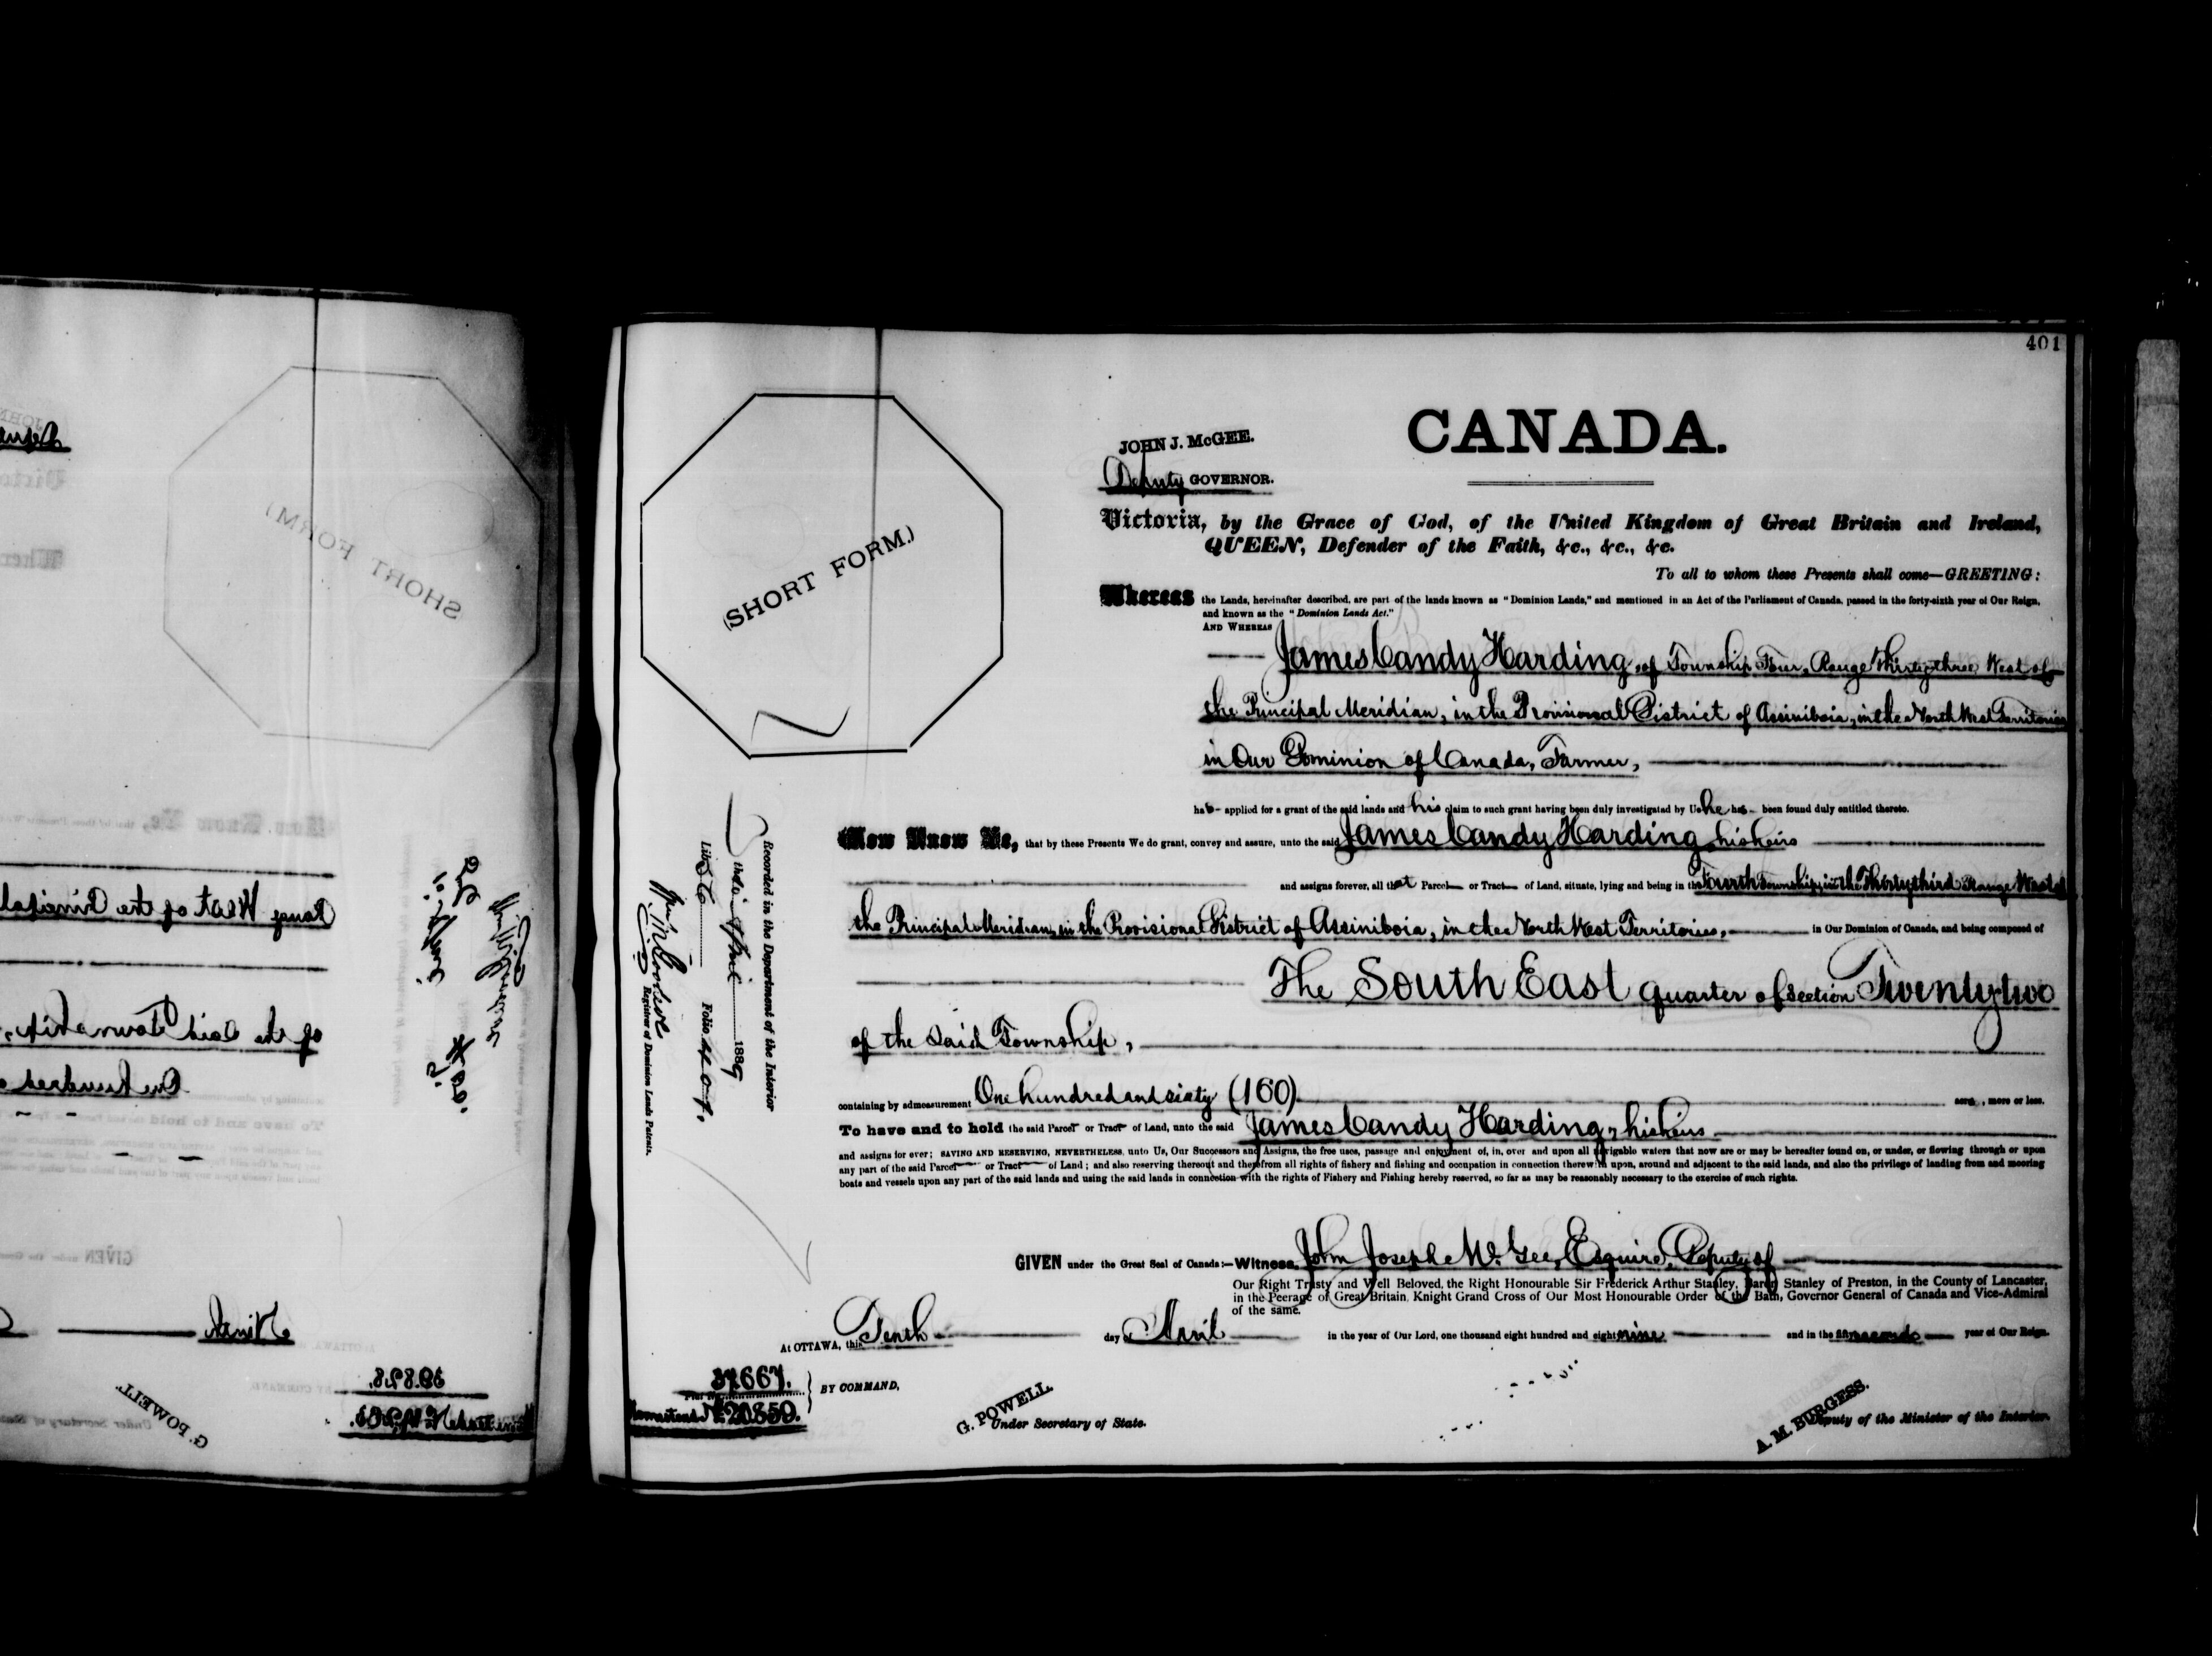 401
CANADA.
JOHN J. McGEE.
Deputy GOVERNOR.
(SHORT FORM.)
Victoria, by the Grace of God, of the United Kingdom of Great Britain and Ireland,
QUEEN, Defender of the Faith, &c., &c., &c.
To all to whom these Presents shall come—GREETING:
Whereas the Lands, hereinafter described, are part of the lands known as "Dominion Lands," and mentioned in an Act of the Parliament of Canada, passed in the forty-sixth year of Our Reign,
and known as the "Dominion Lands Act."
AND WHEREAS
James Candy Harding, of Township Four, Range Thirty three, West of
the Principal Meridian, in the Provisional District of Assiniboia, in the North West Territories
in Our Dominion of Canada, Farmer,
has applied for a grant of the said lands and his claim to such grant having been duly investigated by Us he has been found duly entitled thereto.
Now Know Ye, that by these Presents We do grant, convey and assure, unto the said James Candy Harding, his heirs
and assigns forever, all that Parcel or Tract of Land, situate, lying and being in the Fourth Township, in the Thirty third Range West of
the Principal Meridian, in the Provisional District of Assiniboia, in the North West Territories, in Our Dominion of Canada, and being composed of
The South East quarter of Section Twenty two
of the said Township,
containing by admeasurement One hundred and sixty (160) acres, more or less.
To have and to hold the said Parcel or Tract of Land, unto the said James Candy Harding, his heirs
and assigns for ever; SAVING AND RESERVING, NEVERTHELESS, unto Us, Our Successors and Assigns, the free uses, passage and enjoyment of, in, over and upon all navigable waters that now are or may be hereafter found on, or under, or flowing through or upon
any part of the said Parcel or Tract of Land; and also reserving thereout and therefrom all rights of fishery and fishing and occupation in connection therewith upon, around and adjacent to the said lands, and also the privilege of landing from and mooring
boats and vessels upon any part of the said lands and using the said lands in connection with the rights of Fishery and Fishing hereby reserved, so far as may be reasonably necessary to the exercise of such rights.
GIVEN under the Great Seal of Canada:—Witness, John Joseph McGee, Esquire, Deputy of
Our Right Trusty and Well Beloved, the Right Honourable Sir Frederick Arthur Stanley, Baron Stanley of Preston, in the County of Lancaster,
in the Peerage of Great Britain, Knight Grand Cross of Our Most Honourable Order of the Bath, Governor General of Canada and Vice-Admiral
of the same.
At OTTAWA, this Tenth day of April in the year of Our Lord, one thousand eight hundred and eighty nine and in the fifty second year of Our Reign.
37667.
Homestead No 20859.
BY COMMAND,
G. POWELL.
Under Secretary of State.
A. M. BURGESS.
Deputy of the Minister of the Interior.
Recorded in the Department of the Interior
this April 1889
Lib. Folio 401,
Registrar of Dominion Lands Patents.